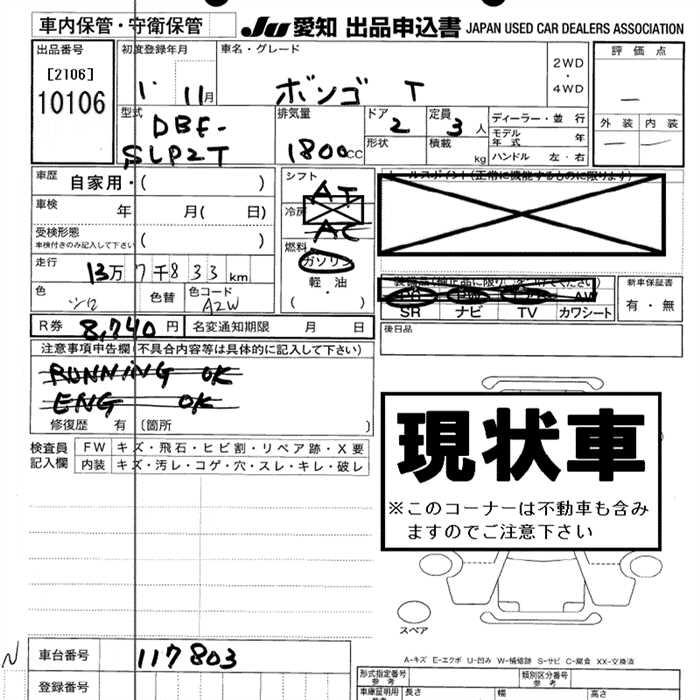 車内保管・守衛保管
JU 愛知 出品申込書 JAPAN USED CAR DEALERS ASSOCIATION
出品番号
[2106]
10106
初度登録年月
11月
車名・グレード
ボンゴ T
2WD
・
4WD
評価点
外装 内装
型式
DBF-
SLP2T
排気量
1800cc
ドア
2
形状
定員
3人
積載
kg
ディーラー・並行
モデル年式
ハンドル 左・右
車歴
自家用・( )
車検
年 月( 日)
受検形態
車検付きのみ記入して下さい
( )
走行
13万7千833km
色
シロ
色替
色コード
A2W
シフト
AT
冷房
AC
燃料
ガソリン
軽・油
( ・ )
セールスポイント(正常に機能するものに限ります)
AW
SR ナビ TV カワシート
新車保証書
有・無
後日品
R券 8,740円
名変通知期限 月 日
注意事項申告欄(不具合内容等は具体的に記入して下さい)
RUNNING OK
ENG OK
修復歴 有 〔箇所 〕
検査員記入欄
FW キズ・飛石・ヒビ割・リペア跡・X要
内装 キズ・汚レ・コゲ・穴・スレ・キレ・破レ
現状車
※このコーナーは不動車も含み
ますのでご注意下さい
スペア
A-キズ E-エクボ U-凹み W-補修跡 S-サビ C-腐食 XX-交換済
N
車台番号
117803
登録番号
形式指定番号
参考
類別区分番号
参考
車庫証明用
参考
長さ
幅
高さ